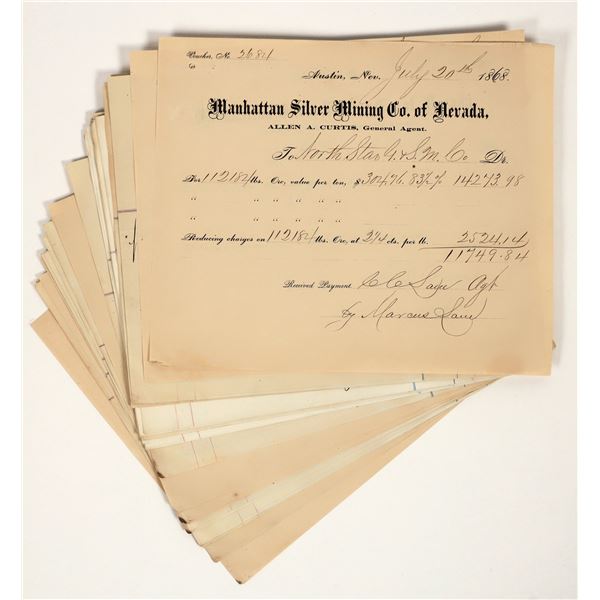 Voucher, No. 2684
Austin, Nev. July 20th 1868.
Manhattan Silver Mining Co. of Nevada,
ALLEN A. CURTIS, General Agent.
To North Star G. & S. M. Co Dr.
For 112184 lbs. Ore, value per ton, $304.76. 83 1/2 % 14273.98
" " " " " "
" " " " " "
Reducing charges on 112184 lbs. Ore, at 2 1/4 cts. per lb. 2524.14
11749.84
Received Payment, Agt
by Marcus